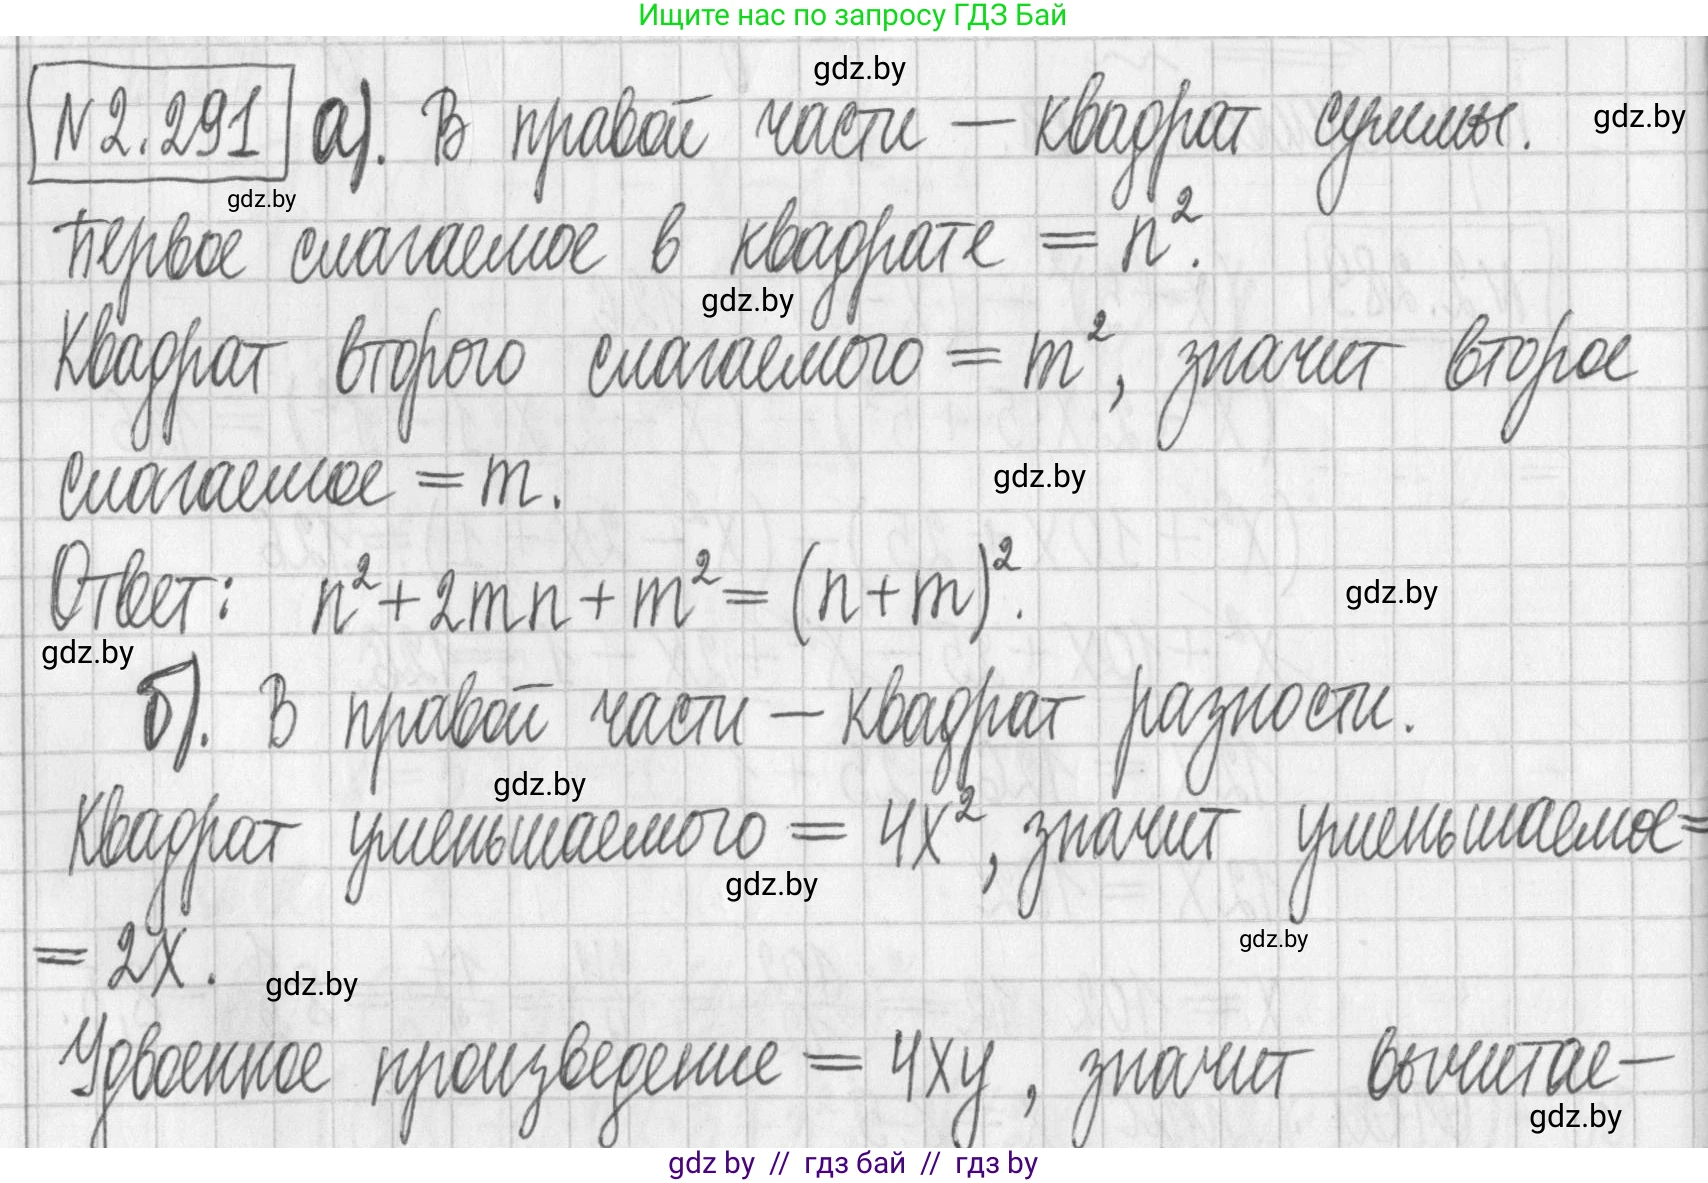 Ищите нас по запросу ГДЗ Бай
gdz.by
№2.291 а). В правой части – квадрат суммы.
gdz.by
gdz.by
Первое слагаемое в квадрате = n².
gdz.by
Квадрат второго слагаемого = m², значит второе
слагаемое = m.
gdz.by
Ответ: n²+2mn+m²=(n+m)².
gdz.by
gdz.by
б). В правой части – квадрат разности.
gdz.by
Квадрат уменьшаемого = 4x², значит уменьшаемое=
gdz.by
gdz.by
= 2x.
gdz.by
Удвоенное произведение = 4xy, значит вычитае–
gdz.by
gdz by // гдз бай // гдз by